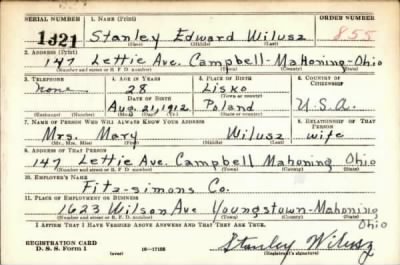 SERIAL NUMBER 1. NAME (Print) ORDER NUMBER
1321 Stanley Edward Wilusz 855
(First) (Middle) (Last)
2. ADDRESS (Print)
147 Lettie Ave. Campbell-Mahoning-Ohio
(Number and street or R. F. D. number) (Town) (County) (State)
3. TELEPHONE 4. AGE IN YEARS 5. PLACE OF BIRTH 6. COUNTRY OF CITIZENSHIP
none 28 Lisko
DATE OF BIRTH
Aug. 21, 1912. Poland U.S.A.
(Exchange) (Number) (Mo.) (Day) (Yr.) (State or country)
7. NAME OF PERSON WHO WILL ALWAYS KNOW YOUR ADDRESS 8. RELATIONSHIP OF THAT PERSON
Mrs. Mary Wilusz wife
(Mr., Mrs., Miss) (First) (Middle) (Last)
9. ADDRESS OF THAT PERSON
147 Lettie Ave. Campbell Mahoning Ohio
(Number and street or R. F. D. number) (Town) (County) (State)
10. EMPLOYER'S NAME
Fitz-simons Co.
11. PLACE OF EMPLOYMENT OR BUSINESS
1623 Wilson Ave Youngstown-Mahoning
Ohio
(Number and street or R. F. D. number) (Town) (County) (State)
I AFFIRM THAT I HAVE VERIFIED ABOVE ANSWERS AND THAT THEY ARE TRUE.
REGISTRATION CARD
D. S. S. Form 1 (over) 16-17105 Stanley Wilusz
(Registrant's signature)